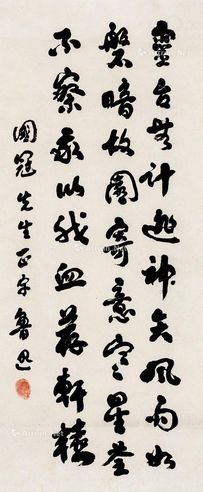 靈台無計逃神矢風雨如
磐暗故園寄意寒星荃
不察我以我血薦軒轅
國冠先生正字 魯迅